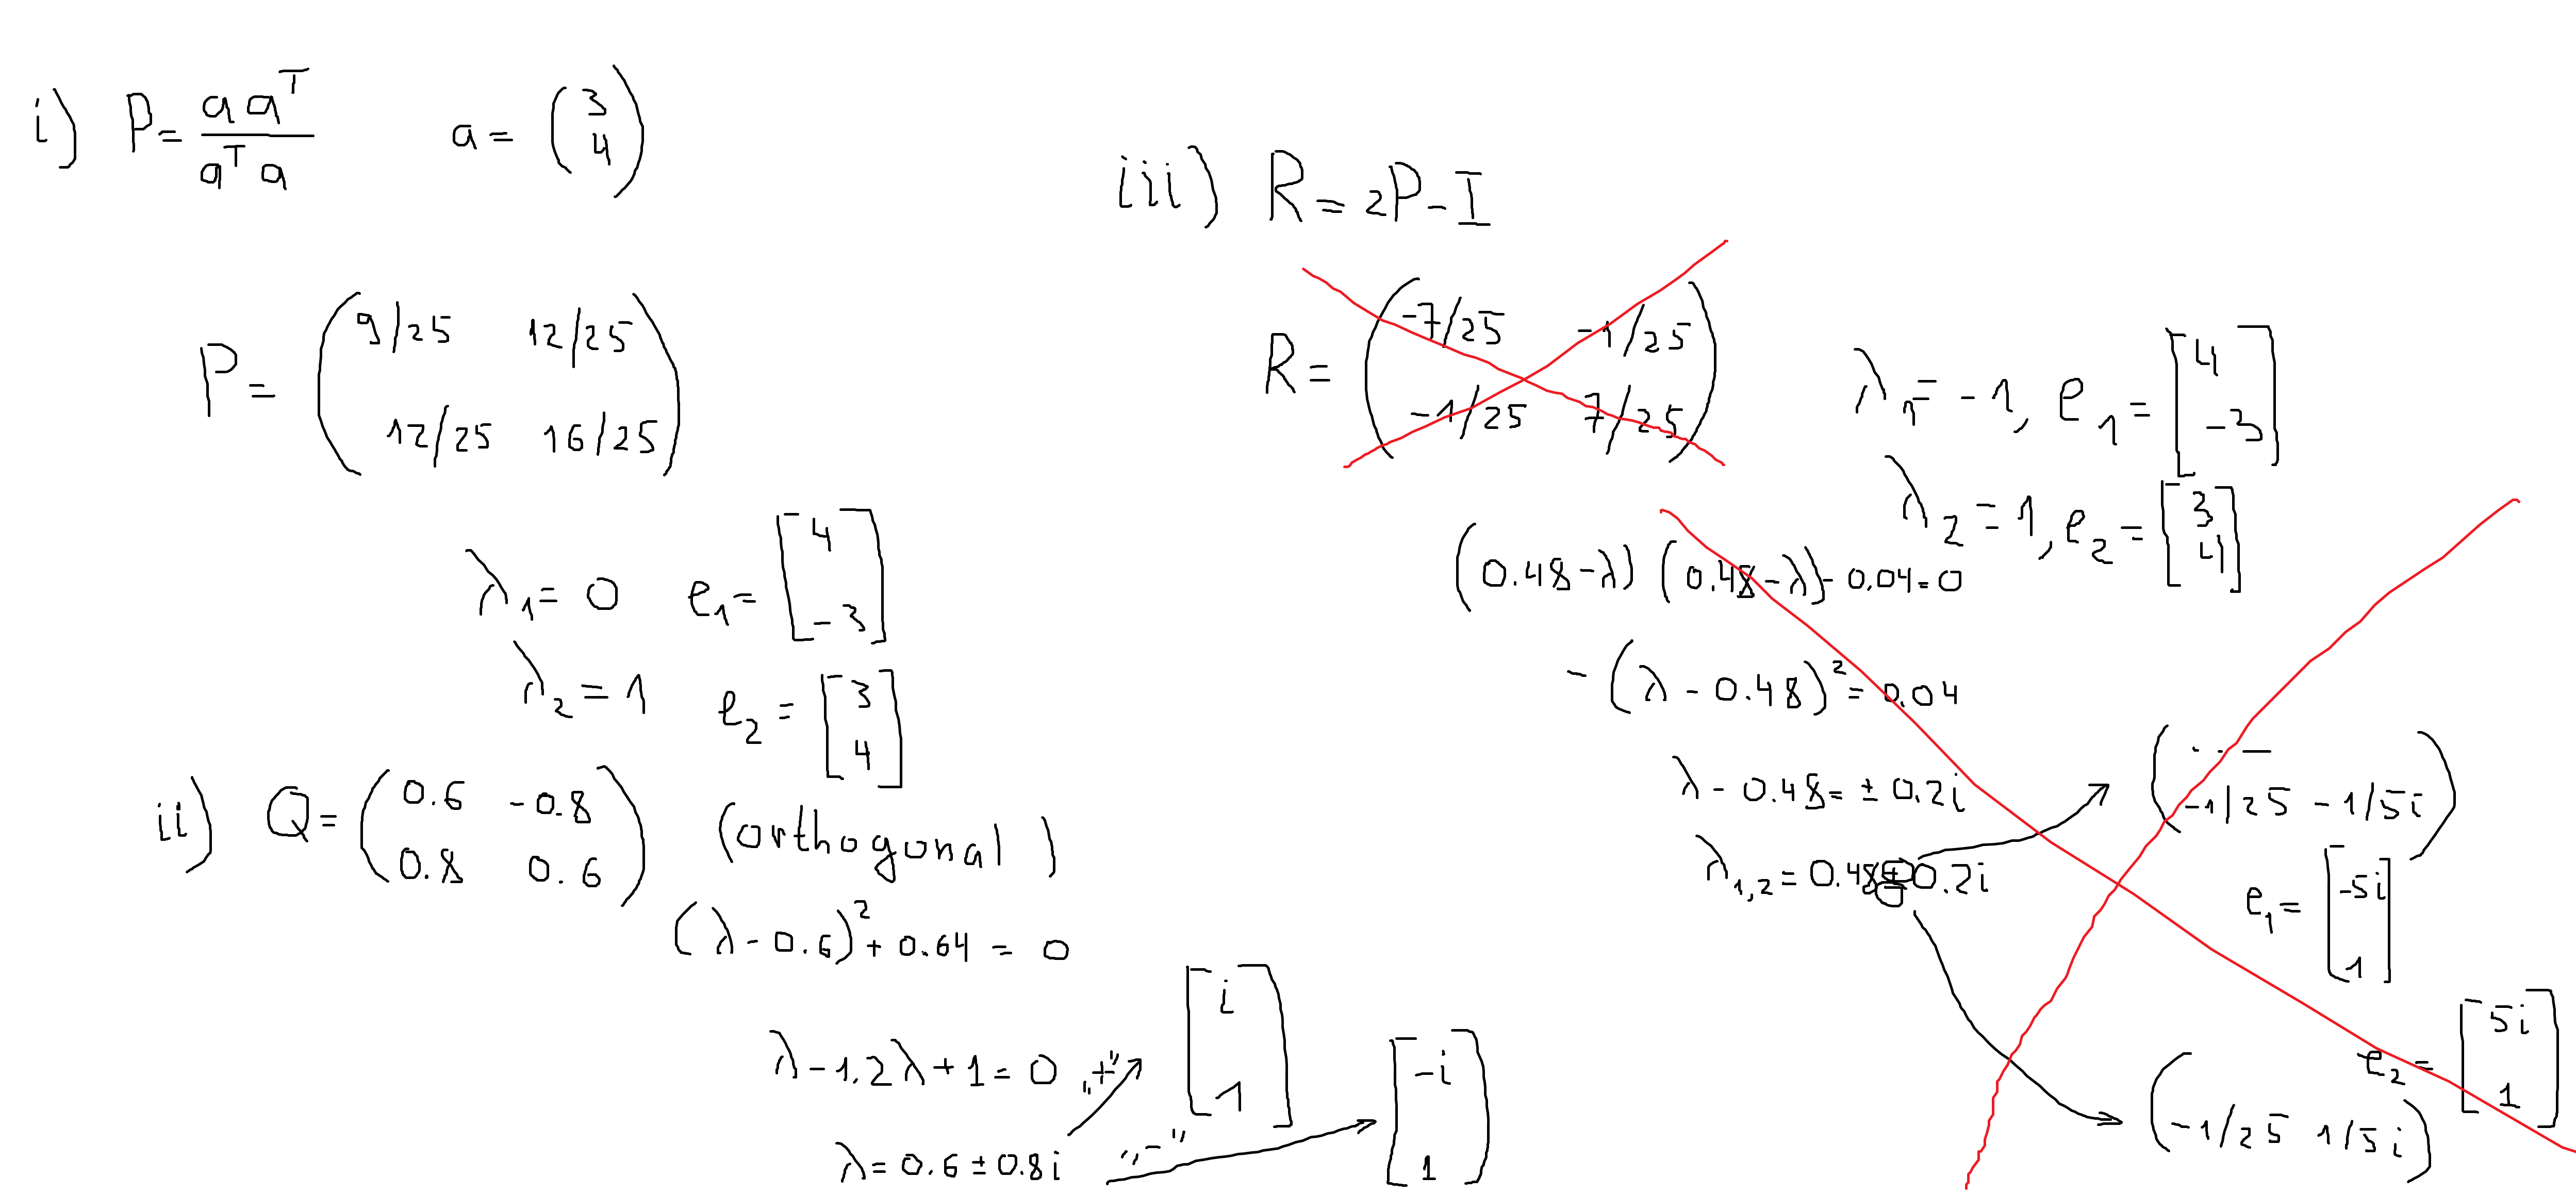 i) P = a a^T / a^T a    a = (3 4)
P = (9/25 12/25
12/25 16/25)
λ_1 = 0 e_1 = [4 -3]
λ_2 = 1 e_2 = [3 4]
ii) Q = (0.6 -0.8
0.8 0.6) (orthogonal)
(λ - 0.6)^2 + 0.64 = 0
λ - 1.2λ + 1 = 0
λ = 0.6 ± 0.8i
„+” [i 1]
„-” [-i 1]
iii) R = 2P - I
R = (-7/25 -1/25
-1/25 7/25)
λ_1 = -1, e_1 = [4 -3]
λ_2 = 1, e_2 = [3 4]
(0.48 - λ) (0.48 - λ) - 0.04 = 0
- (λ - 0.48)^2 = 0.04
λ - 0.48 = ± 0.2i
λ_1,2 = 0.48 ± 0.2i
(. . —
-1/25 -1/5i)
e_1 = [-5i 1]
e_2 = [5i 1]
(-1/25 1/5i)